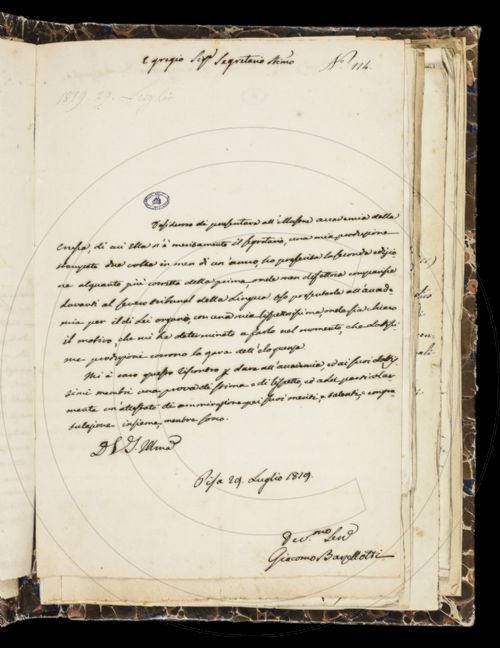 Egregio Sigr Segretario Stimo
No 114.
1819. 29. Luglio
Desideroso di presentare all'Illustre accademia della
Crusca, di cui Ella n'è meritamente il Segretario, una mia produzione
stampata due volte in men di un anno, ho preferita la seconda edizio
ne alquanto più corretta della prima, onde men difettosa comparisse
davanti al severo tribunal della Lingua. Oso presentarla all'accade
mia per il di Lei organo, con una mia rispettosissima, nella quale chiaro
il motivo, che mi ha determinato a farlo nel momento, che dottissi
me produzioni corrono la gara dell'eloquenza.
Mi è caro questo riscontro per dare all'accademia, ed ai suoi dottis
simi membri una prova di stima e di rispetto, ed a Lei particolar
mente un attestato di ammirazione pei suoi meriti, e talenti, e congra
tulazione insieme, mentre sono.
D V. S. Illma
Pisa 29. Luglio 1819.
Devmo Serv
Giacomo Barzellotti